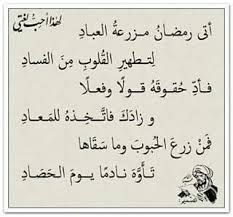 لهذا أحب لغتي
أتى رمضانُ مزرعةُ العبادِ
لِتطهيرِ القُلوبِ مِنَ الفسادِ
فأدِّ حُقوقَهُ قولًا وفعلًا
و زادَكَ فاتَّخِذهُ للمَعادِ
فَمَنْ زرعَ الحُبوبَ وما سقَاها
تأوَّهَ نادمًا يومَ الحَصَادِ